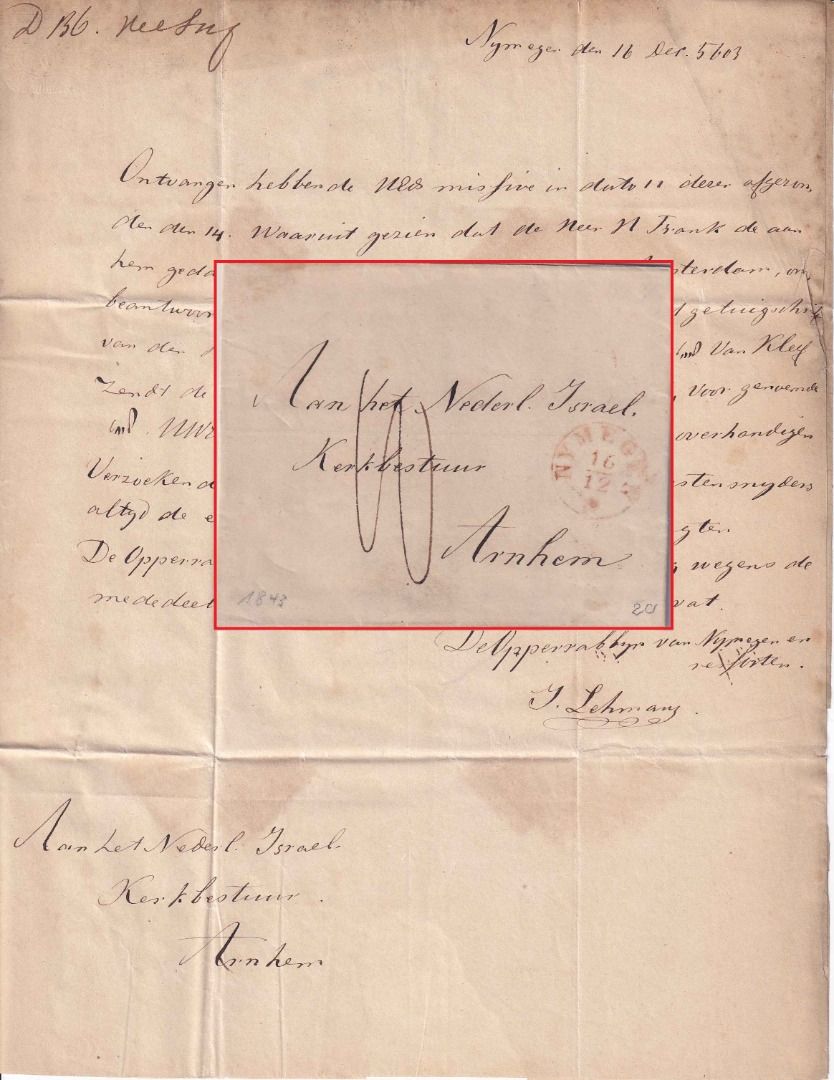 D 136.
Nymegen den 16 Dec. 5603
Ontvangen hebbende missive in dato 11 dezer afgezon,
den den 14. Waaruit gezien dat de Heer N Frank de aan
hem geda sterdam, on
beantwoor getuigschrift
van den Van Kleef
Zendt de voor genoemde
overhandigen
Verzoekend stensnyders
altyd de e gten
De Opperra wegens de
mededeel vat.
De Opperrabbyn van Nymegen en
ressorten.
J. Lehmans.
Aan het Nederl. Israel.
Kerkbestuur.
Arnhem
Aan het Nederl. Israel.
Kerkbestuur
Arnhem
NYMEGEN
16
12
1843
20